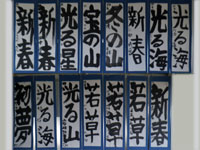 新春
新春
光る星
宝の山
冬の山
新春
光る海
光る海
初夢
光る海
光る山
若草
若草
若草
新春